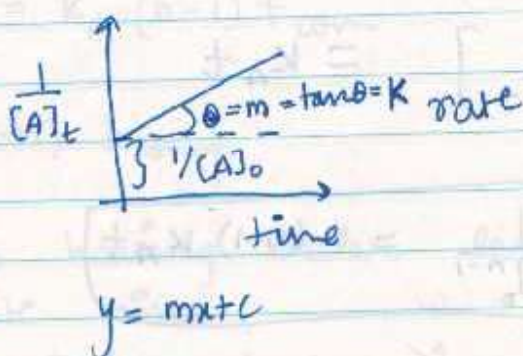 1/[A]t
θ = m = tanθ = K rate
1/[A]₀
time
y = mx+c